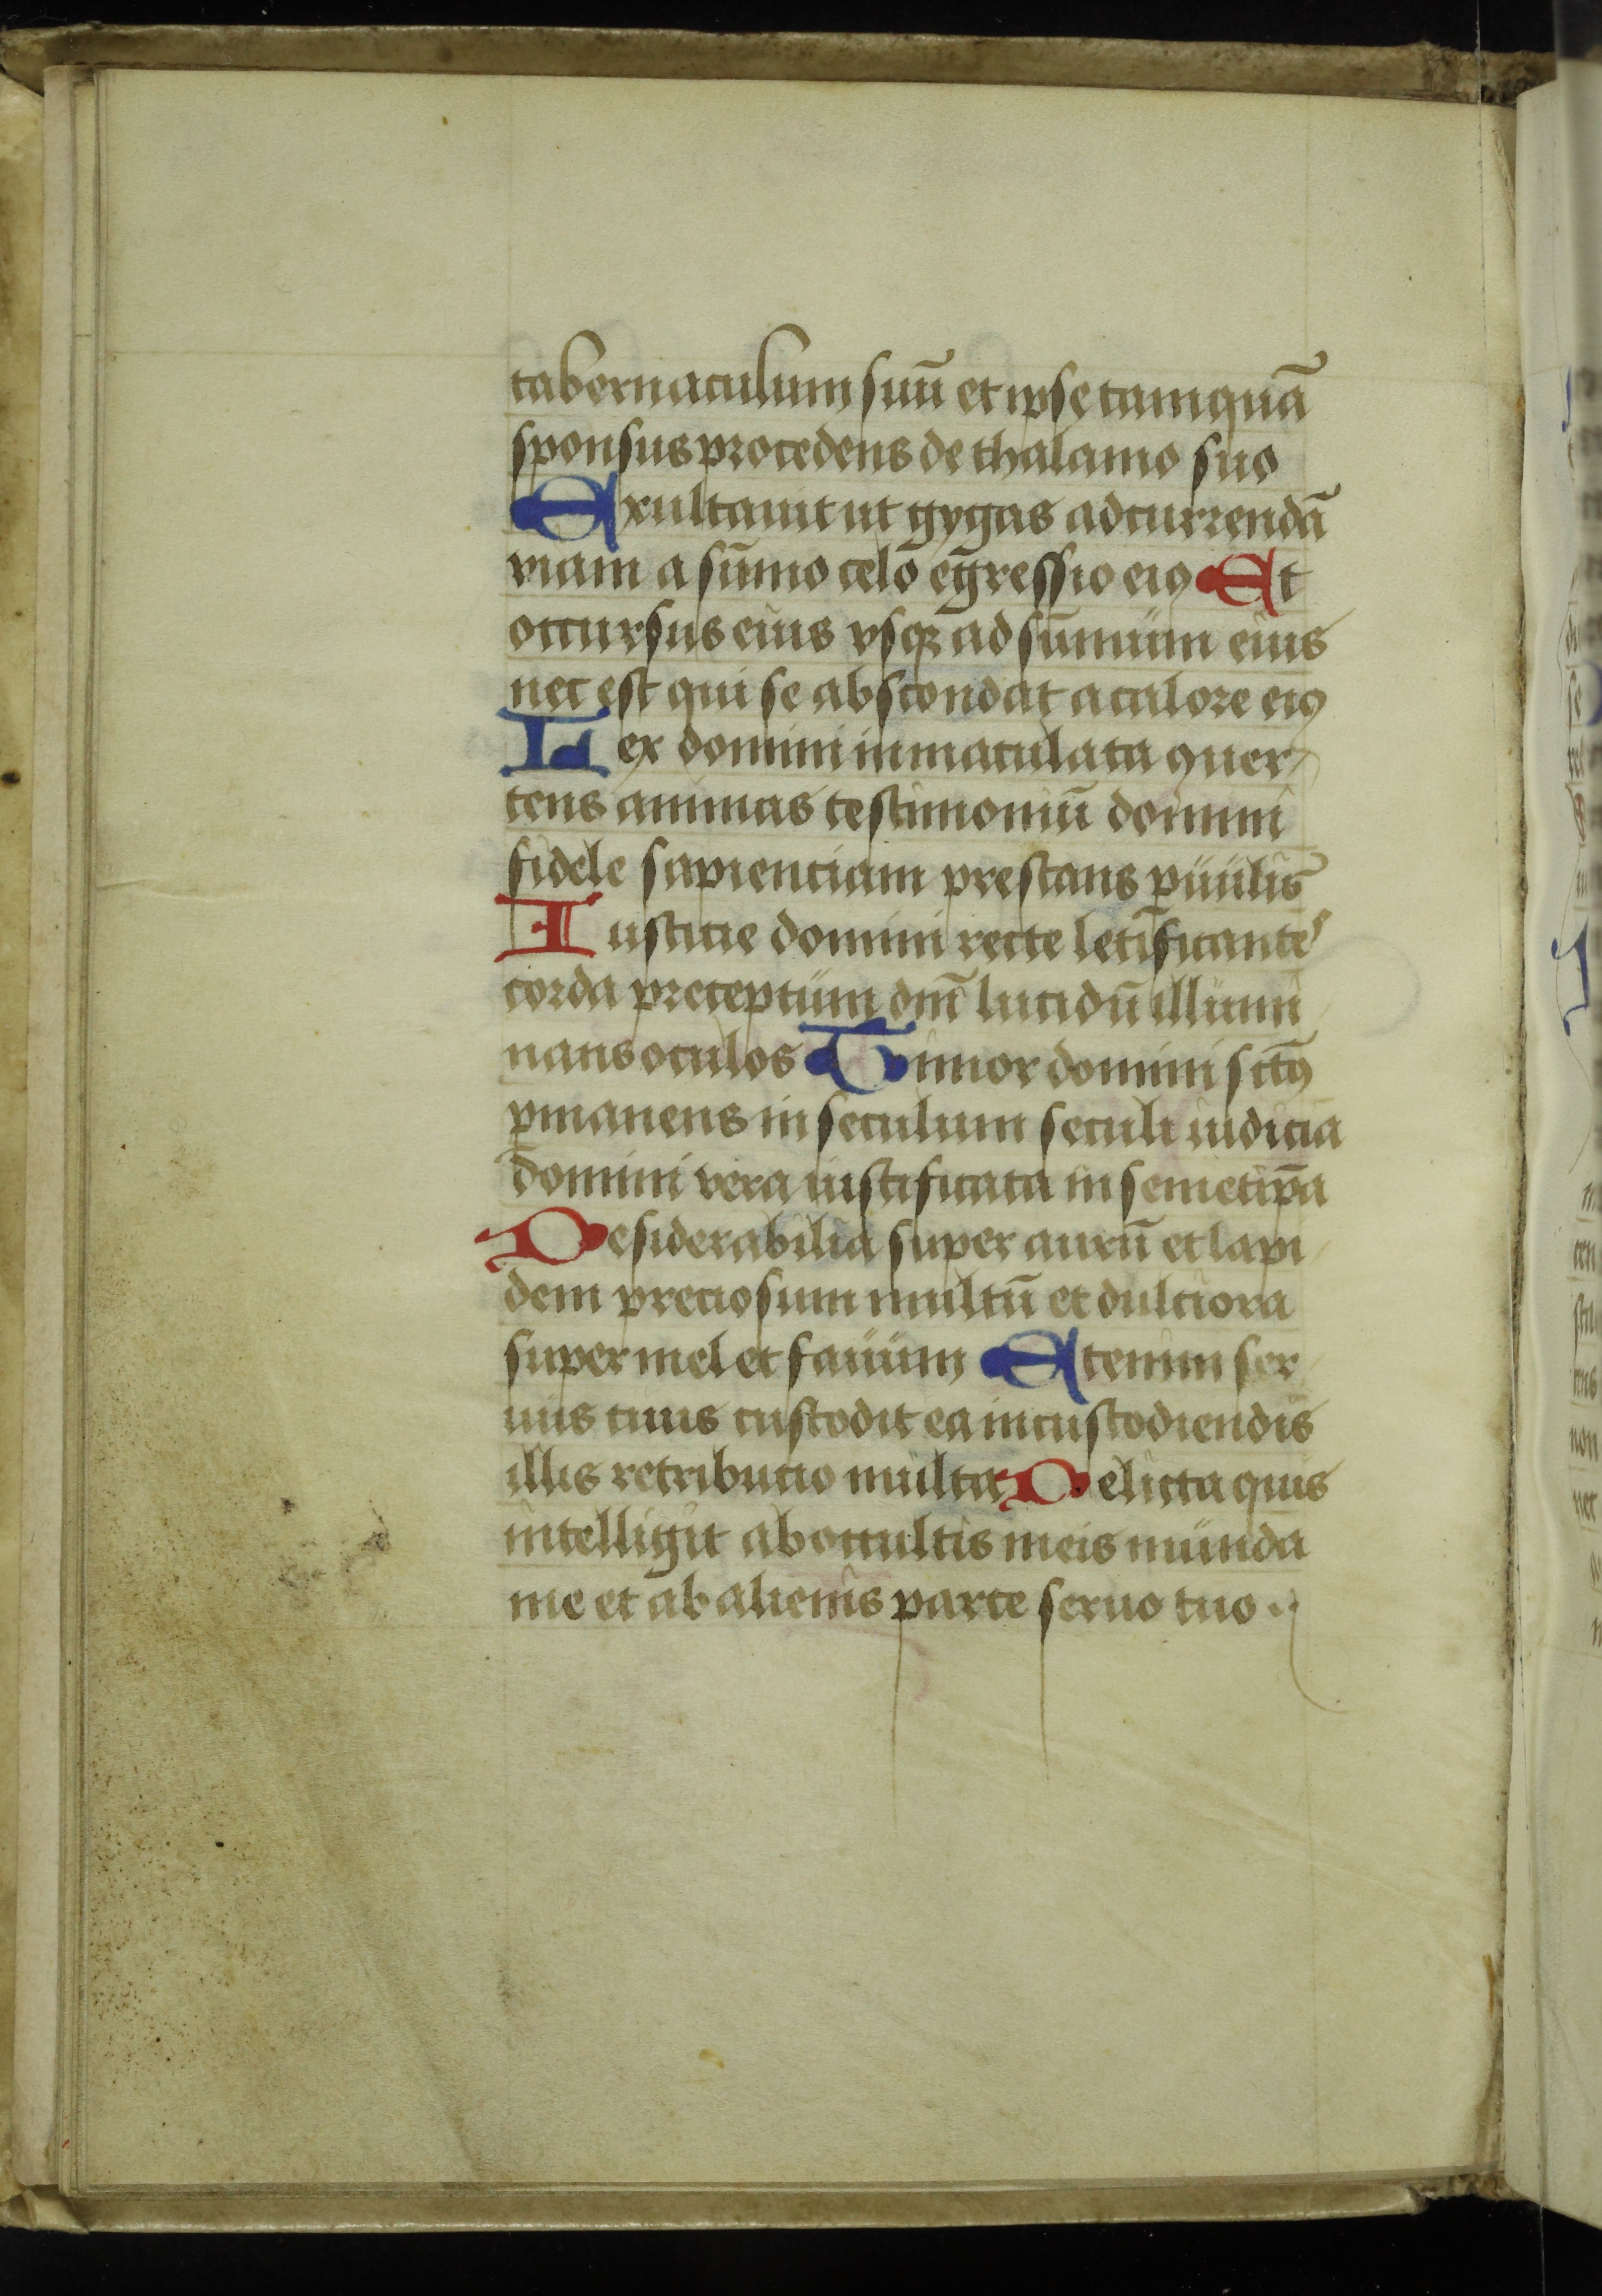 tabernaculum suū et ipse tamquā
sponsus procedens de thalamo suo
Exultauit ut gygas ad currendā
viam a sūmo celo egressio eiꝰ Et
occursus eius vsqꝫ ad sūmum eius
nec est qui se abscondat a calore eiꝰ
Lex domini inmaculata ꝯuer
tens animas testimoniū domini
fidele sapienciam prestans ꝑuulis
Iusticie domini recte letificantes
corda preceptum dnī lucidū illumi
nans oculos Timor domini sctꝰ
ꝑmanens in seculum seculi iudicia
domini vera iustificata in semetip̄a
Desiderabilia super aurū et lapi
dem preciosum multū et dulciora
super mel et fauum Etenim ser
uus tuus custodit ea in custodiendis
illis retributio multa Delicta quis
intelligit ab occultis meis munda
me et ab alienis parce seruo tuo